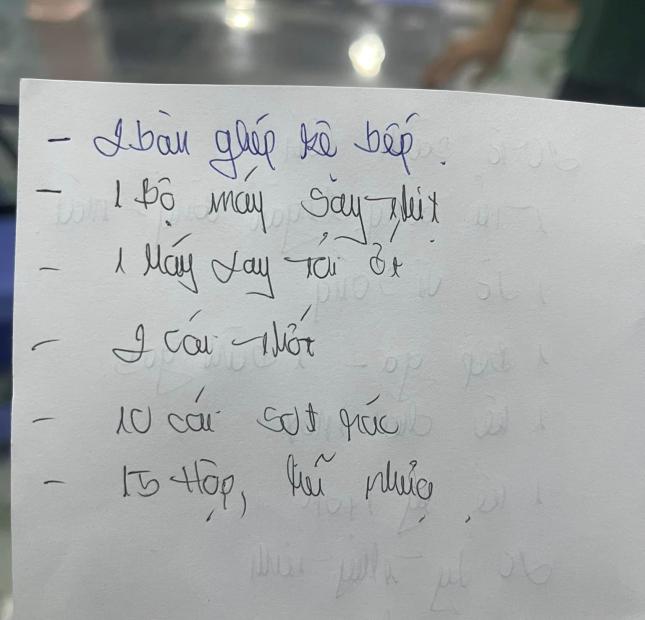 - 2 bàn ghép kê bếp.
- 1 Bộ máy say thịt
- 1 Máy xay tỏi ớt
- 2 cái thớt
- 10 cái sọt rác
- 15 Hộp, hũ nhựa.